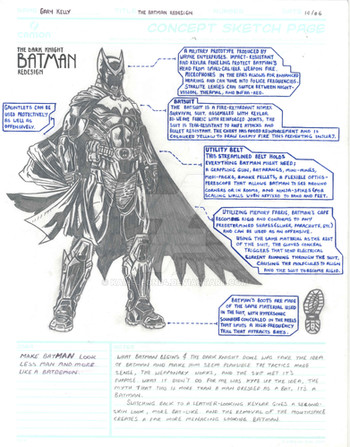 GRAY KELLY
THE BATMAN REDESIGN
10/06
CONCEPT SKETCH PAGE
THE DARK KNIGHT
BATMAN
REDESIGN
A MILITARY PROTOTYPE PRODUCED BY
WAYNE ENTERPRISES. IMPACT-RESISTANT
AND KEVLAR PANELING PROTECT BATMAN'S
HEAD FROM SMALL-CALIBER WEAPON FIRE.
MICROPHONES IN THE EARS ALLOWS FOR ENHANCED
HEARING AND CAN TUNE INTO POLICE FREQUENCIES.
STARLITE LENSES CAN SWITCH BETWEEN NIGHT-
VISIONS, THERMAL, AND INFRA-RED.
GAUNTLETS CAN BE
USED PROTECTIVELY
AS WELL AS
OFFENSIVELY.
BATSUIT
THE BATSUIT IS A FIRE-RETARDENT NOMEX
SURVIVAL SUIT, ASSEMBLED WITH KEVLAR
BI-WEAVE FABRIC WITH REINFORCED JOINTS. THE
SUIT IS TEAR-RESISTENT TO KNIFE ATTACKS AND
BULLET RESISTANT. THE CHEST HAS ADDED REINFORCEMENT AND IS
COLOURED YELLOW TO DRAW ENEMY FIRE THUS PREVENTING INJURY.
UTILITY BELT
THIS STREAMLINED BELT HOLDS
EVERYTHING BATMAN MIGHT NEED:
A GRAPPLING GUN, BATARANGS, MINI-MINES,
MEDI-PACKS, SMOKE PELLETS, A FLEXIBLE OPTICS-
PERISCOPE THAT ALLOWS BATMAN TO SEE AROUND
CORNERS OR IN ROOMS, AND NINJA-SPIKES FOR
SCALING WALLS WHEN AFFIXED TO HAND AND FEET.
UTILIZING MEMORY FABRIC, BATMAN'S CAPE
BECOMING RIGID AND CONFORMS TO ANY
PREDETERMINED SHAPES (GLIDER, PARACHUTE, ETC.)
AND CAN BE USED AS AN OFFENSIVE.
USING THE SAME MATERIAL AS THE REST
OF THE SUIT, THE GLOVES CONCEAL
TRIGGERS THAT SEND ELECTRICAL
CURRENT RUNNING THROUGH THE SUIT,
CAUSING THE MOLECULES TO ALIGN
AND THE SUIT TO BECOME RIGID.
BATMAN'S BOOTS ARE MADE
OF THE SAME MATERIAL USED
IN THE SUIT, WITH HYPERSONIC
SOUNDERS CONCEALED IN THE HEELS
THAT EMITS A HIGH-FREQUENCY
TRILL THAT ATTRACTS BATS.
MAKE BATMAN LOOK
LESS MAN AND MORE
LIKE A BATDEMON.
WHAT BATMAN BEGINS & THE DARK KNIGHT DOES WAS TAKE THE IDEA
OF BATMAN AND MAKE HIM SEEM PLAUSIBLE. THE TACTICS MADE
SENSE, THE WEAPONRY WORKS, AND THE SUIT MET ITS
PURPOSE. WHAT IT DIDN'T DO FOR ME WAS HYPE UP THE IDEA, THE
MYTH THAT THIS IS MORE THAN A MAN DRESSED AS A BAT, IT'S A
BATMAN.
SWITCHING BACK TO A LEATHER-LOOKING KEVLAR GIVES A SECOND-
SKIN LOOK, MORE BAT-LIKE. AND THE REMOVAL OF THE
CREATES A FAR MORE MENACING LOOKING BATMAN.